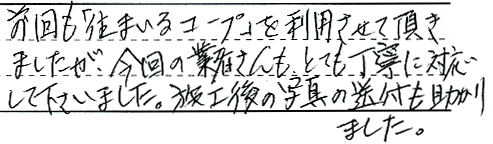 前回も「住まいるコープ」を利用させて頂き
ましたが、今回の業者さんも、とても丁寧に対応
して下さいました。施工後の写真の送付も助かり
ました。